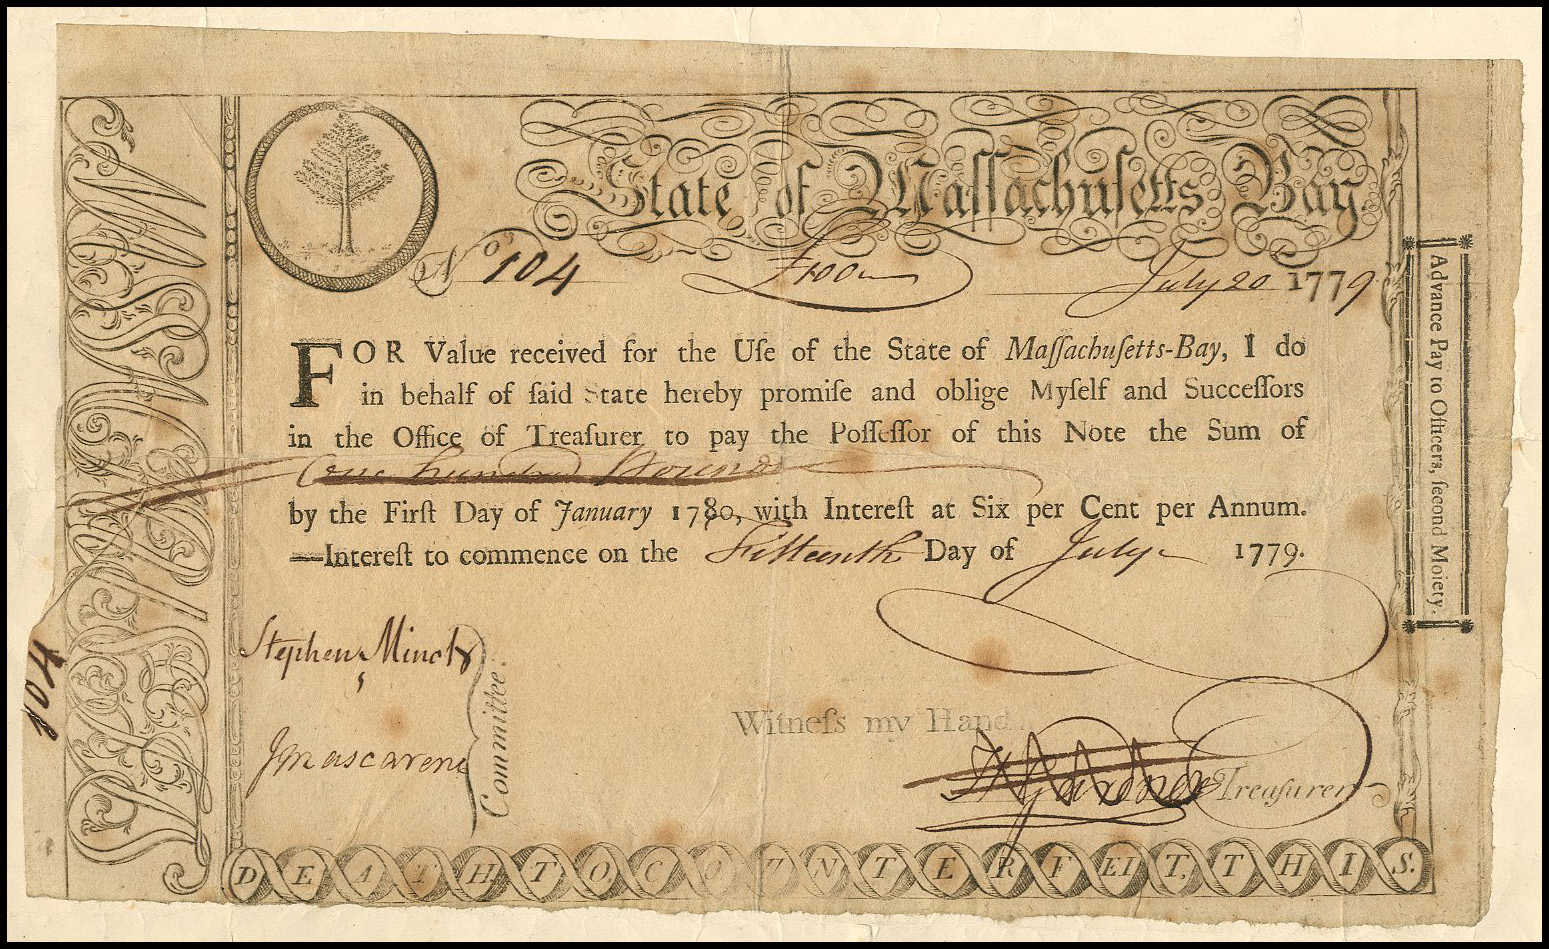 State of Maſſachuſetts Bay
No 104 £100 July 20 1779
FOR Value received for the Uſe of the State of Maſſachuſetts-Bay, I do
in behalf of ſaid State hereby promiſe and oblige Myſelf and Succeſſors
in the Office of Treaſurer to pay the Poſſeſſor of this Note the Sum of
One hundred Pounds
by the Firſt Day of January 1780, with Intereſt at Six per Cent per Annum.
—Intereſt to commence on the Fifteenth Day of July 1779.
Stephen Minot
Committee.
Witneſs my Hand
H Gardner Treaſurer
DEATH TO COUNTERFEIT, THIS.
Advance Pay to Officers, ſecond Moiety.
104